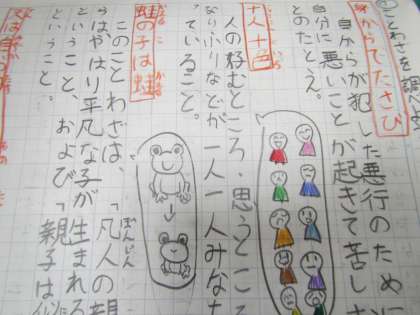 ①ことわざを調べ
身からでたさび
自からが犯した悪行のために
自分に悪いことが起きて苦し
とのたとえ。
十人十色
人の好むところ、思うところ
なりふりなどが一人一人みな
っていること。
蛙の子は蛙
このことわざは、「凡人の親
ぼんじん
らはやはり平凡な子が生まれる
ということ、および「親子は似
ということ。